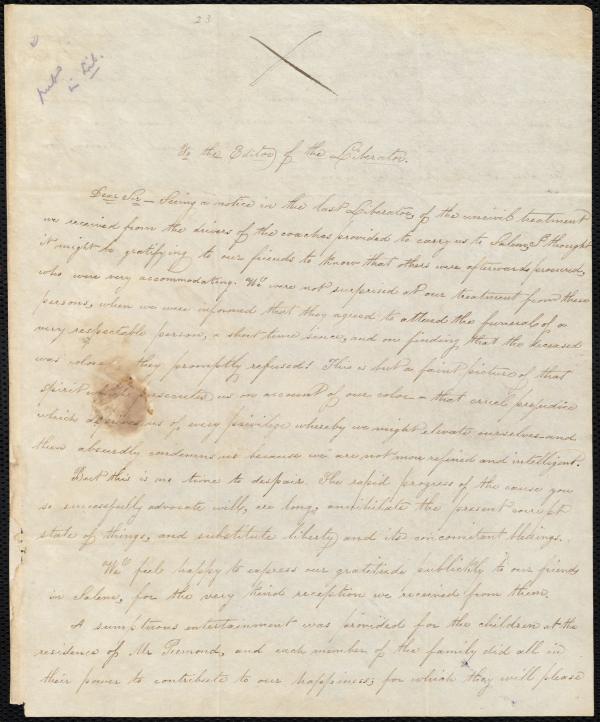 23
pub
in Lib.
To the Editor of the Liberator.
Dear Sir — Seeing a notice in the last Liberator, of the uncivil treatment
we received from the drivers of the coaches provided to carry us to Salem, I thought
it might be gratifying to our friends to know that others were afterwards procured,
who were very accommodating. We were not surprised at our treatment from these
persons, when we were informed that they agreed to attend the funeral of a
very respectable person, a short time since, and on finding that the deceased
was they promptly refused! This is but a faint picture of that
spirit persecutes us on account of our color — that cruel prejudice
which deprives us of every privilege whereby we might elevate ourselves — and
then absurdly condemns us because we are not more refined and intelligent.
But this is no time to despair. The rapid progress of the cause you
so successfully advocate will, ere long, annihilate the present corrupt
state of things, and substitute liberty and its concomitant blessings.
We feel happy to express our gratitude publickly to our friends
in Salem, for the very kind reception we received from them.
A sumptuous entertainment was provided for the children at the
residence of Mr Remond, and each member of the family did all in
their power to contribute to our happiness; for which they will please